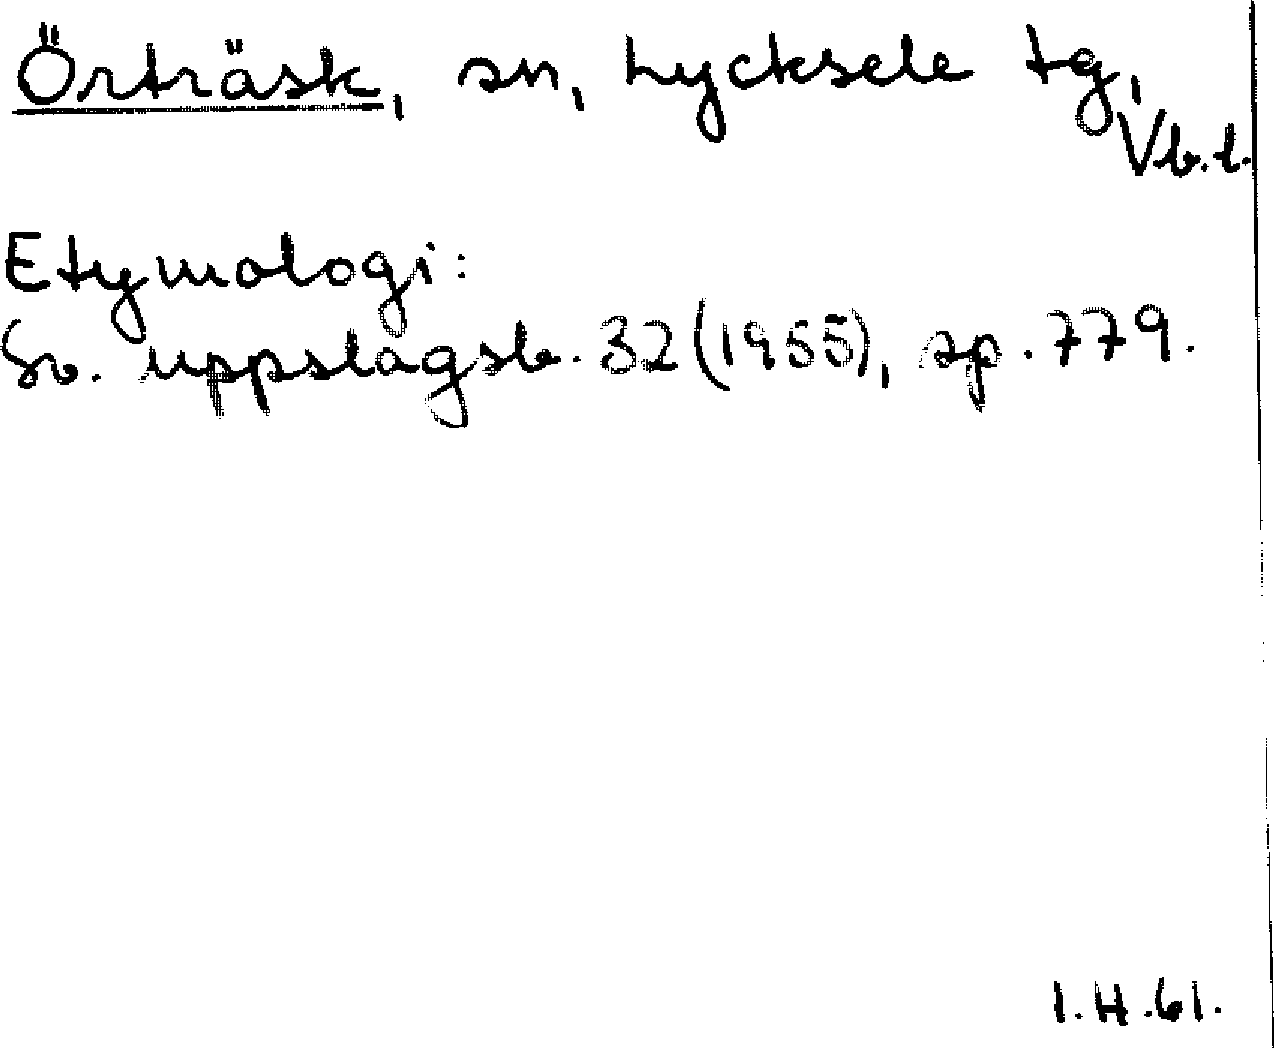 Örträsk, sn, Lycksele tg,
Vb. l.
Etymologi:
Sv. uppslagsb. 32 (1955), sp. 779.
I.H.61.